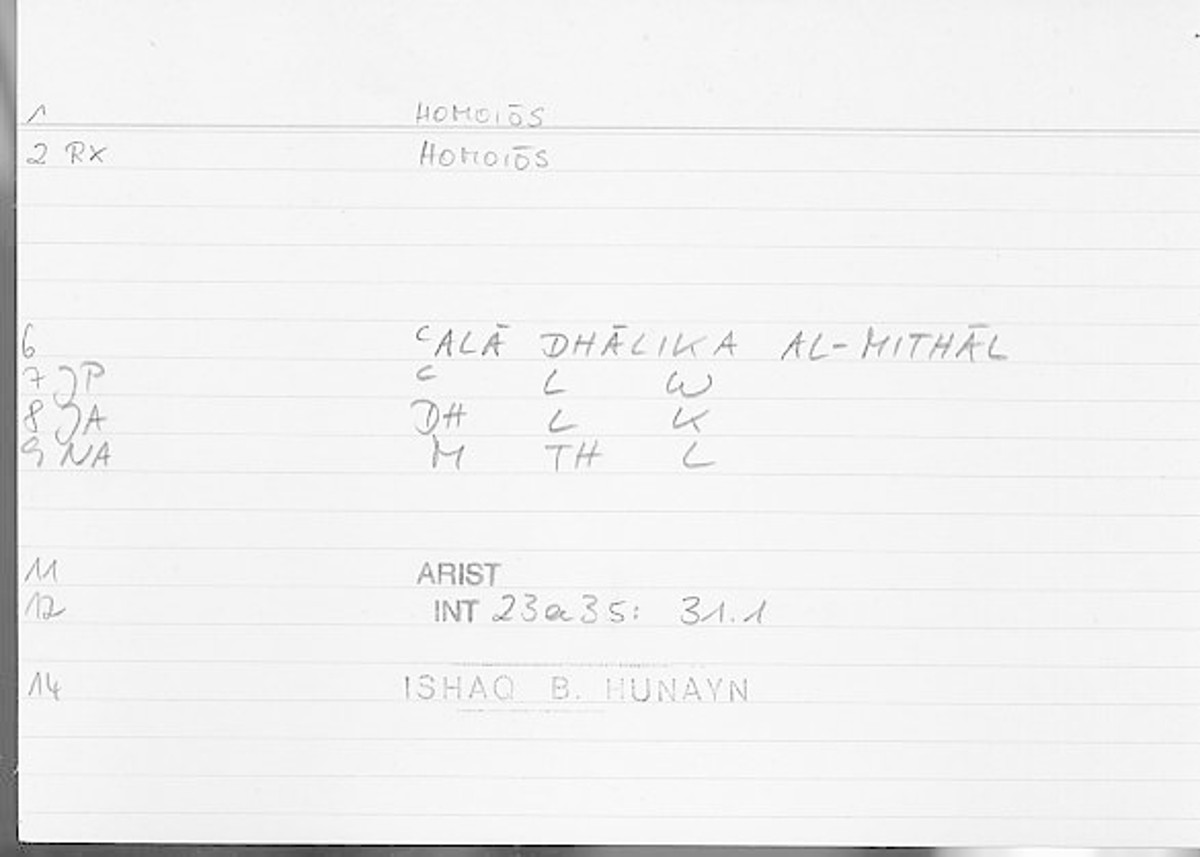 1 HOMOIŌS
2 RX HOMOIŌS
6 ᶜALĀ DHĀLIKA AL-MITHĀL
7 JP ᶜ L W
8 JA DH L K
9 NA M TH L
11 ARIST
12 INT 23a35: 31.1
14 ISHAQ B. HUNAYN